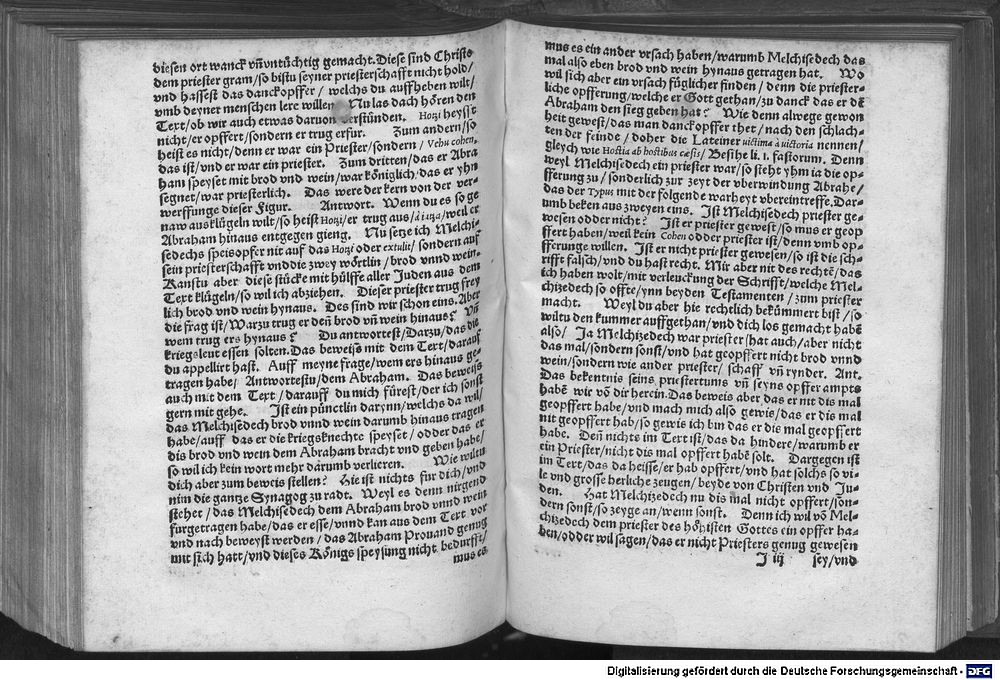 diesen ort wanck vñ vntüchtig gemacht. Diese sind Christo
dem priester gram/so bistu seyner priesterschafft nicht hold/
vnd hassest das danckopffer/ welchs du auffheben wilt/
vmb deyner menschen lere willen. Nu las dach hören den
Text/ob wir auch etwas daruon verstünden. Hotzi heysst
nicht/er opffert/sondern er trug erfur. Zum andern/so
heist es nicht/denn er war ein Priester/sondern/ Vehu cohen,
das ist/vnd er war ein priester. Zum dritten/das er Abra
ham speyset mit brod vnd wein/war königlich/das er yhn
segnet/war priesterlich. Das were der kern von der ver-
werffunge dieser Figur. Antwort. Wenn du es so ge
naw ausklügeln wilt/so heist Hotzi/er trug aus/ weil er
Abraham hinaus entgegen gieng. Nu setze ich Melchi-
sedechs speisopfer nit auf das Hotzi oder extulit/ sondern auf
sein priesterschafft vnd die zwey wörtlin/ brod vnnd wein-
Kanstu aber diese stücke mit hülffe aller Juden aus dem
Text klügeln/so wil ich abziehen. Dieser priester trug frey
lich brod vnd wein hynaus. Des sind wir schon eins. Aber
die frag ist/Warzu trug er deñ brod vñ wein hinaus? Vñ
wem trug ers hynaus? Du antwortest/Darzu/das die
kriegsleut essen solten. Das beweiß mit dem Text/darauf
du appellirt hast. Auff meyne frage/wem ers hinaus ge-
tragen habe/ Antwortestu/dem Abraham. Das beweiß
auch mit dem Text/darauff du mich fürest/der ich sonst
gern mit gehe. Ist ein pünctlin darynn/welchs da wil/
das Melchisedech brod vnnd wein darumb hinaus tragen
habe/auff das er die kriegsknechte speyset/ odder das er
dis brod vnd wein dem Abraham bracht vnd geben habe/
so wil ich kein wort mehr darumb verlieren. Wie wiltu
dich aber zum beweis stellen? Hie ist nichts für dich/vnd
nim die gantze Synagog zu radt. Weyl es denn nirgend
stehet/das Melchisedech dem Abraham brod vnnd wein
fürgetragen habe/das er esse/vnnd kan aus dem Text vor
vnd nach beweyst werden/das Abraham Prouand genug
mit sich hatt/vnd dieses Königs speysung nicht bedurfft/
mus es
mus es ein ander vrsach haben/warumb Melchisedech das
mal also eben brod vnd wein hynaus getragen hat. Wo
wil sich aber ein vrsach füglicher finden/ denn die priester-
liche opfferung/welche er Gott gethan/zu danck das er dē
Abraham den sieg geben hat? Wie denn alwege gewon
heit gewest/das man danckopffer thet/nach den schlach-
ten der feinde/ doher die Lateiner victima à victoria nennen/
gleych wie Hostia ab hostibus cæsis/ Besihe li. 1. fastorum. Denn
weyl Melchisedech ein priester war/so steht yhm ia die op-
fferung zu/sonderlich zur zeyt der vberwindung Abrahe/
das der Typus mit der folgende warheyt vbereintreffe. Dar-
umb beken aus zweyen eins. Ist Melchisedech priester ge-
wesen odder nicht? Ist er priester gewest/so mus er geop
ffert haben/weil kein Cohen odder priester ist/denn vmb op-
fferunge willen. Ist er nicht priester gewesen/so ist die sch-
rifft falsch/vnd du hast recht. Mir aber nit des rechtē/das
ich haben wolt/mit verleuckung der Schrifft/welche Mel-
chizedech so offte/ynn beyden Testamenten/zum priester
macht. Weyl du aber hie rechtlich bekümmert bist/so
wiltu den kummer auffgethan/vnd dich los gemacht habē
also/ Ja Melchizedech war priester/hat auch/aber nicht
das mal/sondern sonst/vnd hat geopffert nicht brod vnnd
wein/sondern wie ander priester/ schaff vñ rynder. Ant.
Das bekentnis seins priestertums vñ seyns opffer ampts
habē wir vō dir herein. Das beweis aber das er nit dis mal
geopffert habe/vnd mach mich also gewis/das er dis mal
nit geopffert hab/so gewis ich bin das er dis mal geopffert
habe. Deñ nichts im Text ist/das da hindere/warumb er
ein Priester/nicht dis mal opffert habē solt. Dargegen ist
im Text/das da heisse/er hab opffert/vnd hat solchs so vi-
le vnd grosse herliche zeugen/beyde von Christen vnd Ju-
den. Hat Melchizedech nu dis mal nicht opffert/son-
dern sonst/so zeyge an/wenn sonst. Denn ich wil vō Mel-
chizedech dem priester des höhisten Gottes ein opffer ha-
ben/odder wil sagen/das er nicht Priesters genug gewesen
J iij sey/vnd
Digitalisierung gefördert durch die Deutsche Forschungsgemeinschaft - DFG